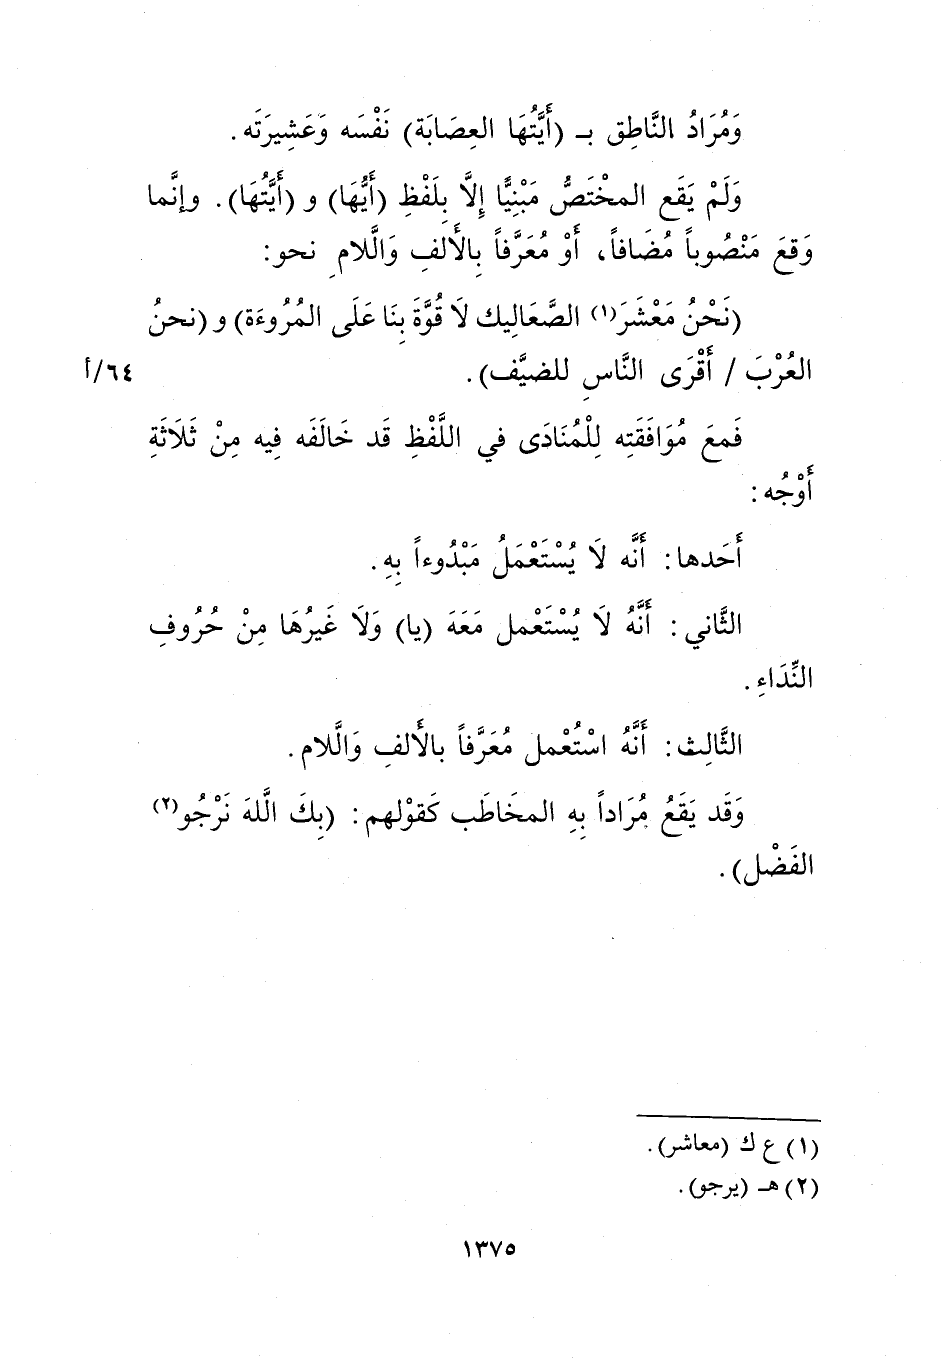 وَمُرَادُ النَّاطِق بـ (أَيَّتُهَا العِصَابَة) نَفْسَه وَعَشِيرَتَه .
وَلَمْ يَقَع المخْتَصُّ مَبْنِيًّا إِلَّا بِلَفْظِ (أَيُّهَا) و (أَيَّتُهَا). وإنَّما
وَقعَ مَنْصُوباً مُضَافاً، أَوْ مُعَرَّفاً بِالأَلفِ وَالَّلام نحو:
(نَحْنُ مَعْشَرَ(١) الصَّعَالِيك لَا قُوَّةَ بِنَا عَلَى المُرُوءَة) و (نحنُ
العُرْبَ / أَقْرَى النَّاسِ للضيَّف). ٦٤/أ
فَمعَ مُوَافَقَتِه لِلْمُنَادَى في اللَّفْظِ قَد خَالَفَه فِيه مِنْ ثَلَاثَةِ
أَوْجُه :
أَحَدها: أَنَّه لَا يُسْتَعْمَلُ مَبْدُوءاً بِهِ.
الثَّاني : أَنَّهُ لَا يُسْتَعْمل مَعَهَ (يا) وَلَا غَيرُهَا مِنْ حُرُوفِ
النِّدَاءِ .
الثَّالِث: أَنَّهُ اسْتُعْمل مُعَرَّفاً بالأَلفِ وَالَّلام.
وَقَد يَقَعُ مُرَاداً بِهِ المخَاطَب كَقوْلهم: (بِكَ الَّلهَ نَرْجُو(٢)
الفَضْل) .
(١) ع ك (معاشر).
(٢) هـ (يرجو).
١٣٧٥